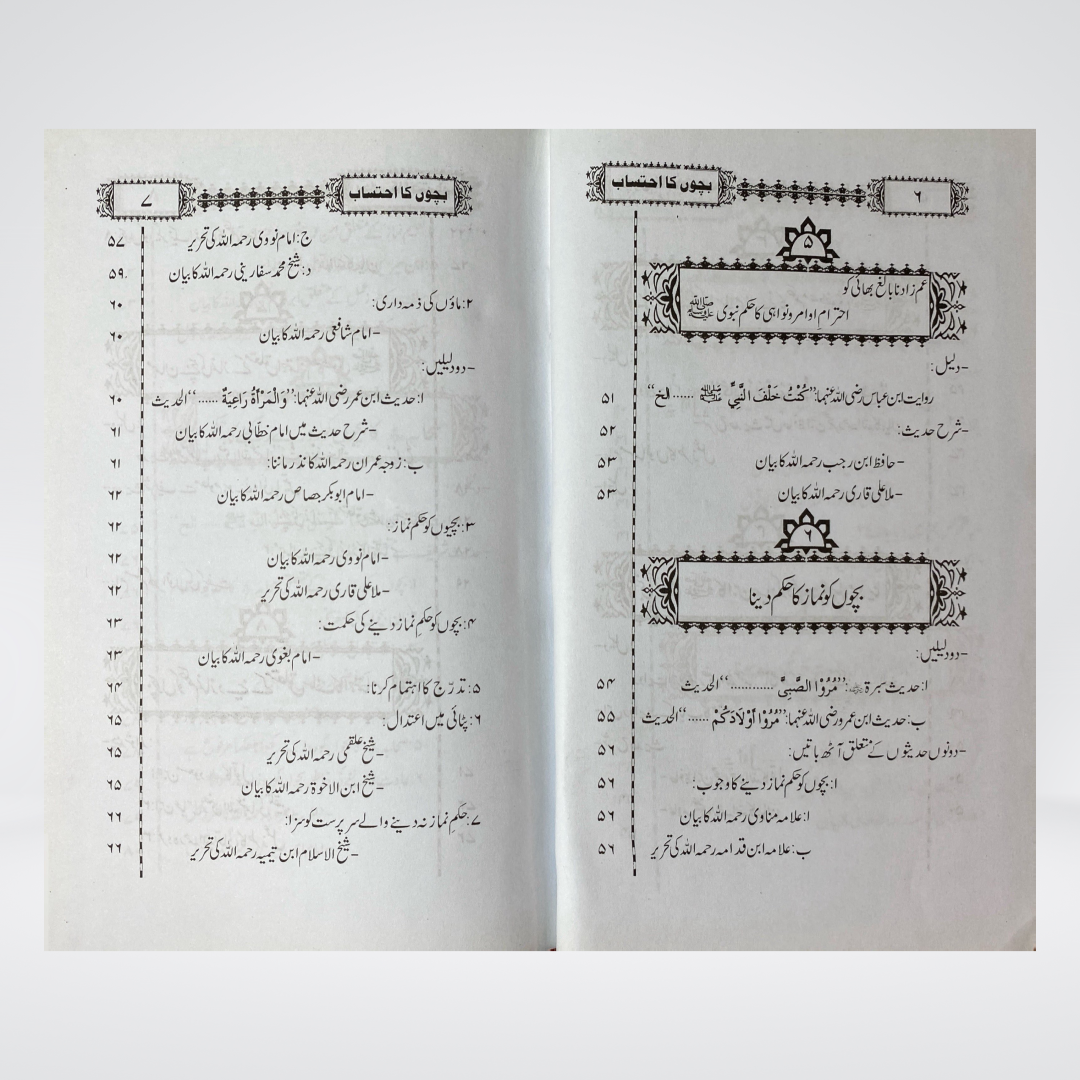 بچوں کا احتساب ۶
۵
عم زاد نابالغ بھائی کو
احترامِ اوامر و نواہی کا حکم نبوی ﷺ
-دلیل:
روایت ابن عباس رضی اللہ عنہما: ”كُنْتُ خَلْفَ النَّبِيِّ ﷺ ...... الخ“ ۵۱
-شرح حدیث: ۵۲
-حافظ ابن رجب رحمہ اللہ کا بیان ۵۳
-ملا علی قاری رحمہ اللہ کا بیان ۵۳
۶
بچوں کو نماز کا حکم دینا
-دو دلیلیں:
ا: حدیث سبرۃ رضی اللہ عنہ: ”مُرُوْا الصَّبِیَّ ............“ الحدیث ۵۴
ب: حدیث ابن عمرو رضی اللہ عنہما: ”مُرُوْا أَوْلَادَكُمْ ......“ الحدیث ۵۵
-دونوں حدیثوں کے متعلق آٹھ باتیں: ۵۶
ا: بچوں کو حکم نماز دینے کا وجوب: ۵۶
ا: علامہ مناوی رحمہ اللہ کا بیان ۵۶
ب: علامہ ابن قدامہ رحمہ اللہ کی تحریر ۵۶
بچوں کا احتساب ۷
ج: امام نووی رحمہ اللہ کی تحریر ۵۷
د: شیخ محمد سفارینی رحمہ اللہ کا بیان ۵۹
۲: ماؤں کی ذمہ داری: ۶۰
-امام شافعی رحمہ اللہ کا بیان ۶۰
-دو دلیلیں:
ا: حدیث ابن عمر رضی اللہ عنہما: ”وَالْمَرْأَةُ رَاعِيَةٌ ......“ الحدیث ۶۰
-شرح حدیث میں امام خطّابی رحمہ اللہ کا بیان ۶۱
ب: زوجہ عمران رحمہ اللہ کا نذر ماننا: ۶۱
-امام ابوبکر جصاص رحمہ اللہ کا بیان ۶۲
۳: بچیوں کو حکم نماز: ۶۲
-امام نووی رحمہ اللہ کا بیان ۶۲
-ملا علی قاری رحمہ اللہ کی تحریر ۶۲
۴: بچوں کو حکمِ نماز دینے کی حکمت: ۶۳
-امام بغوی رحمہ اللہ کا بیان ۶۳
۵: تدرّج کا اہتمام کرنا: ۶۴
۶: پٹائی میں اعتدال: ۶۵
-شیخ علقمی رحمہ اللہ کی تحریر ۶۵
-شیخ ابن الاخوۃ رحمہ اللہ کا بیان ۶۵
۷: حکمِ نماز نہ دینے والے سرپرست کو سزا: ۶۶
-شیخ الاسلام ابن تیمیہ رحمہ اللہ کی تحریر ۶۶